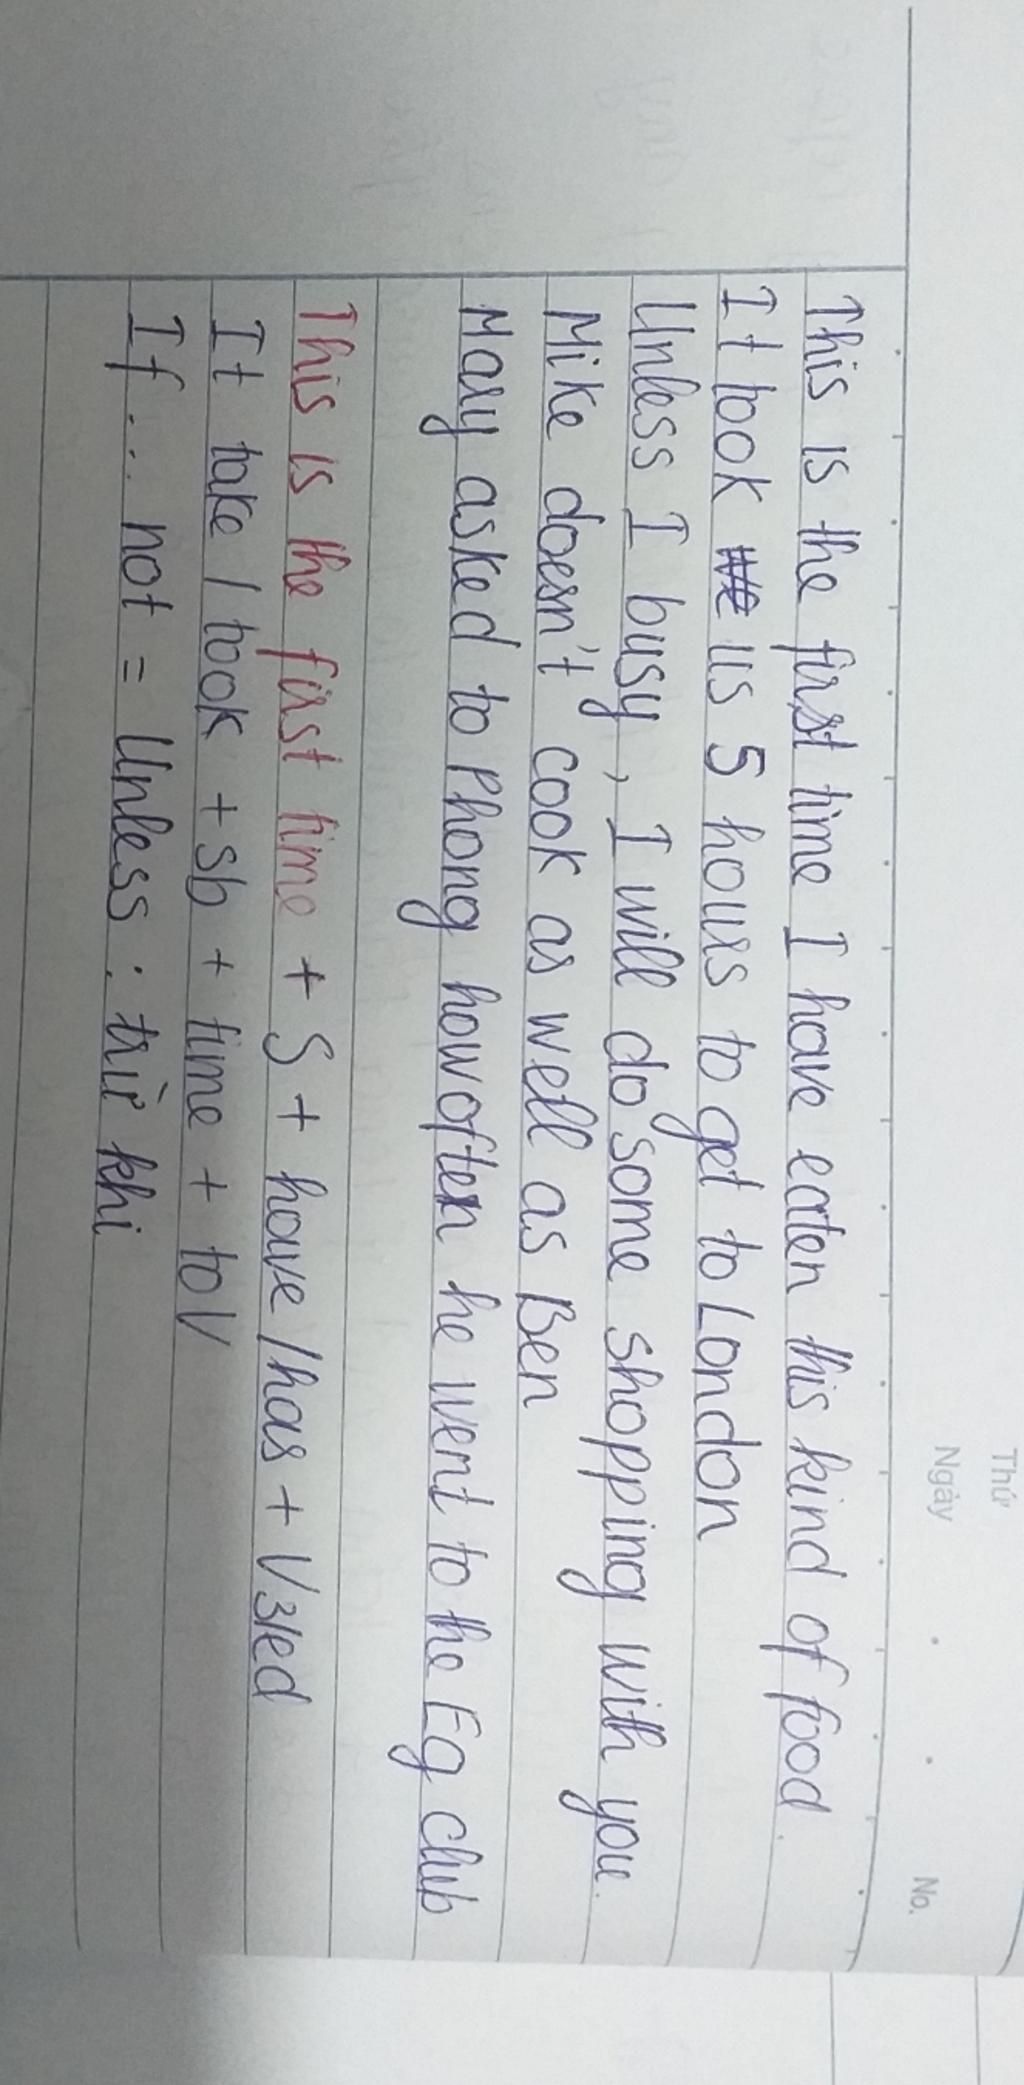 Thứ
Ngày
No.
This is the first time I have eaten this kind of food.
It took us 5 hours to get to London
Unless I busy, I will do some shopping with you.
Mike doesn't cook as well as Ben
Mary asked to Phong how often he went to the Eg club
This is the first time + S + have / has + V3/ed
It take / took + sb + time + to V
If ... not = Unless : trừ khi